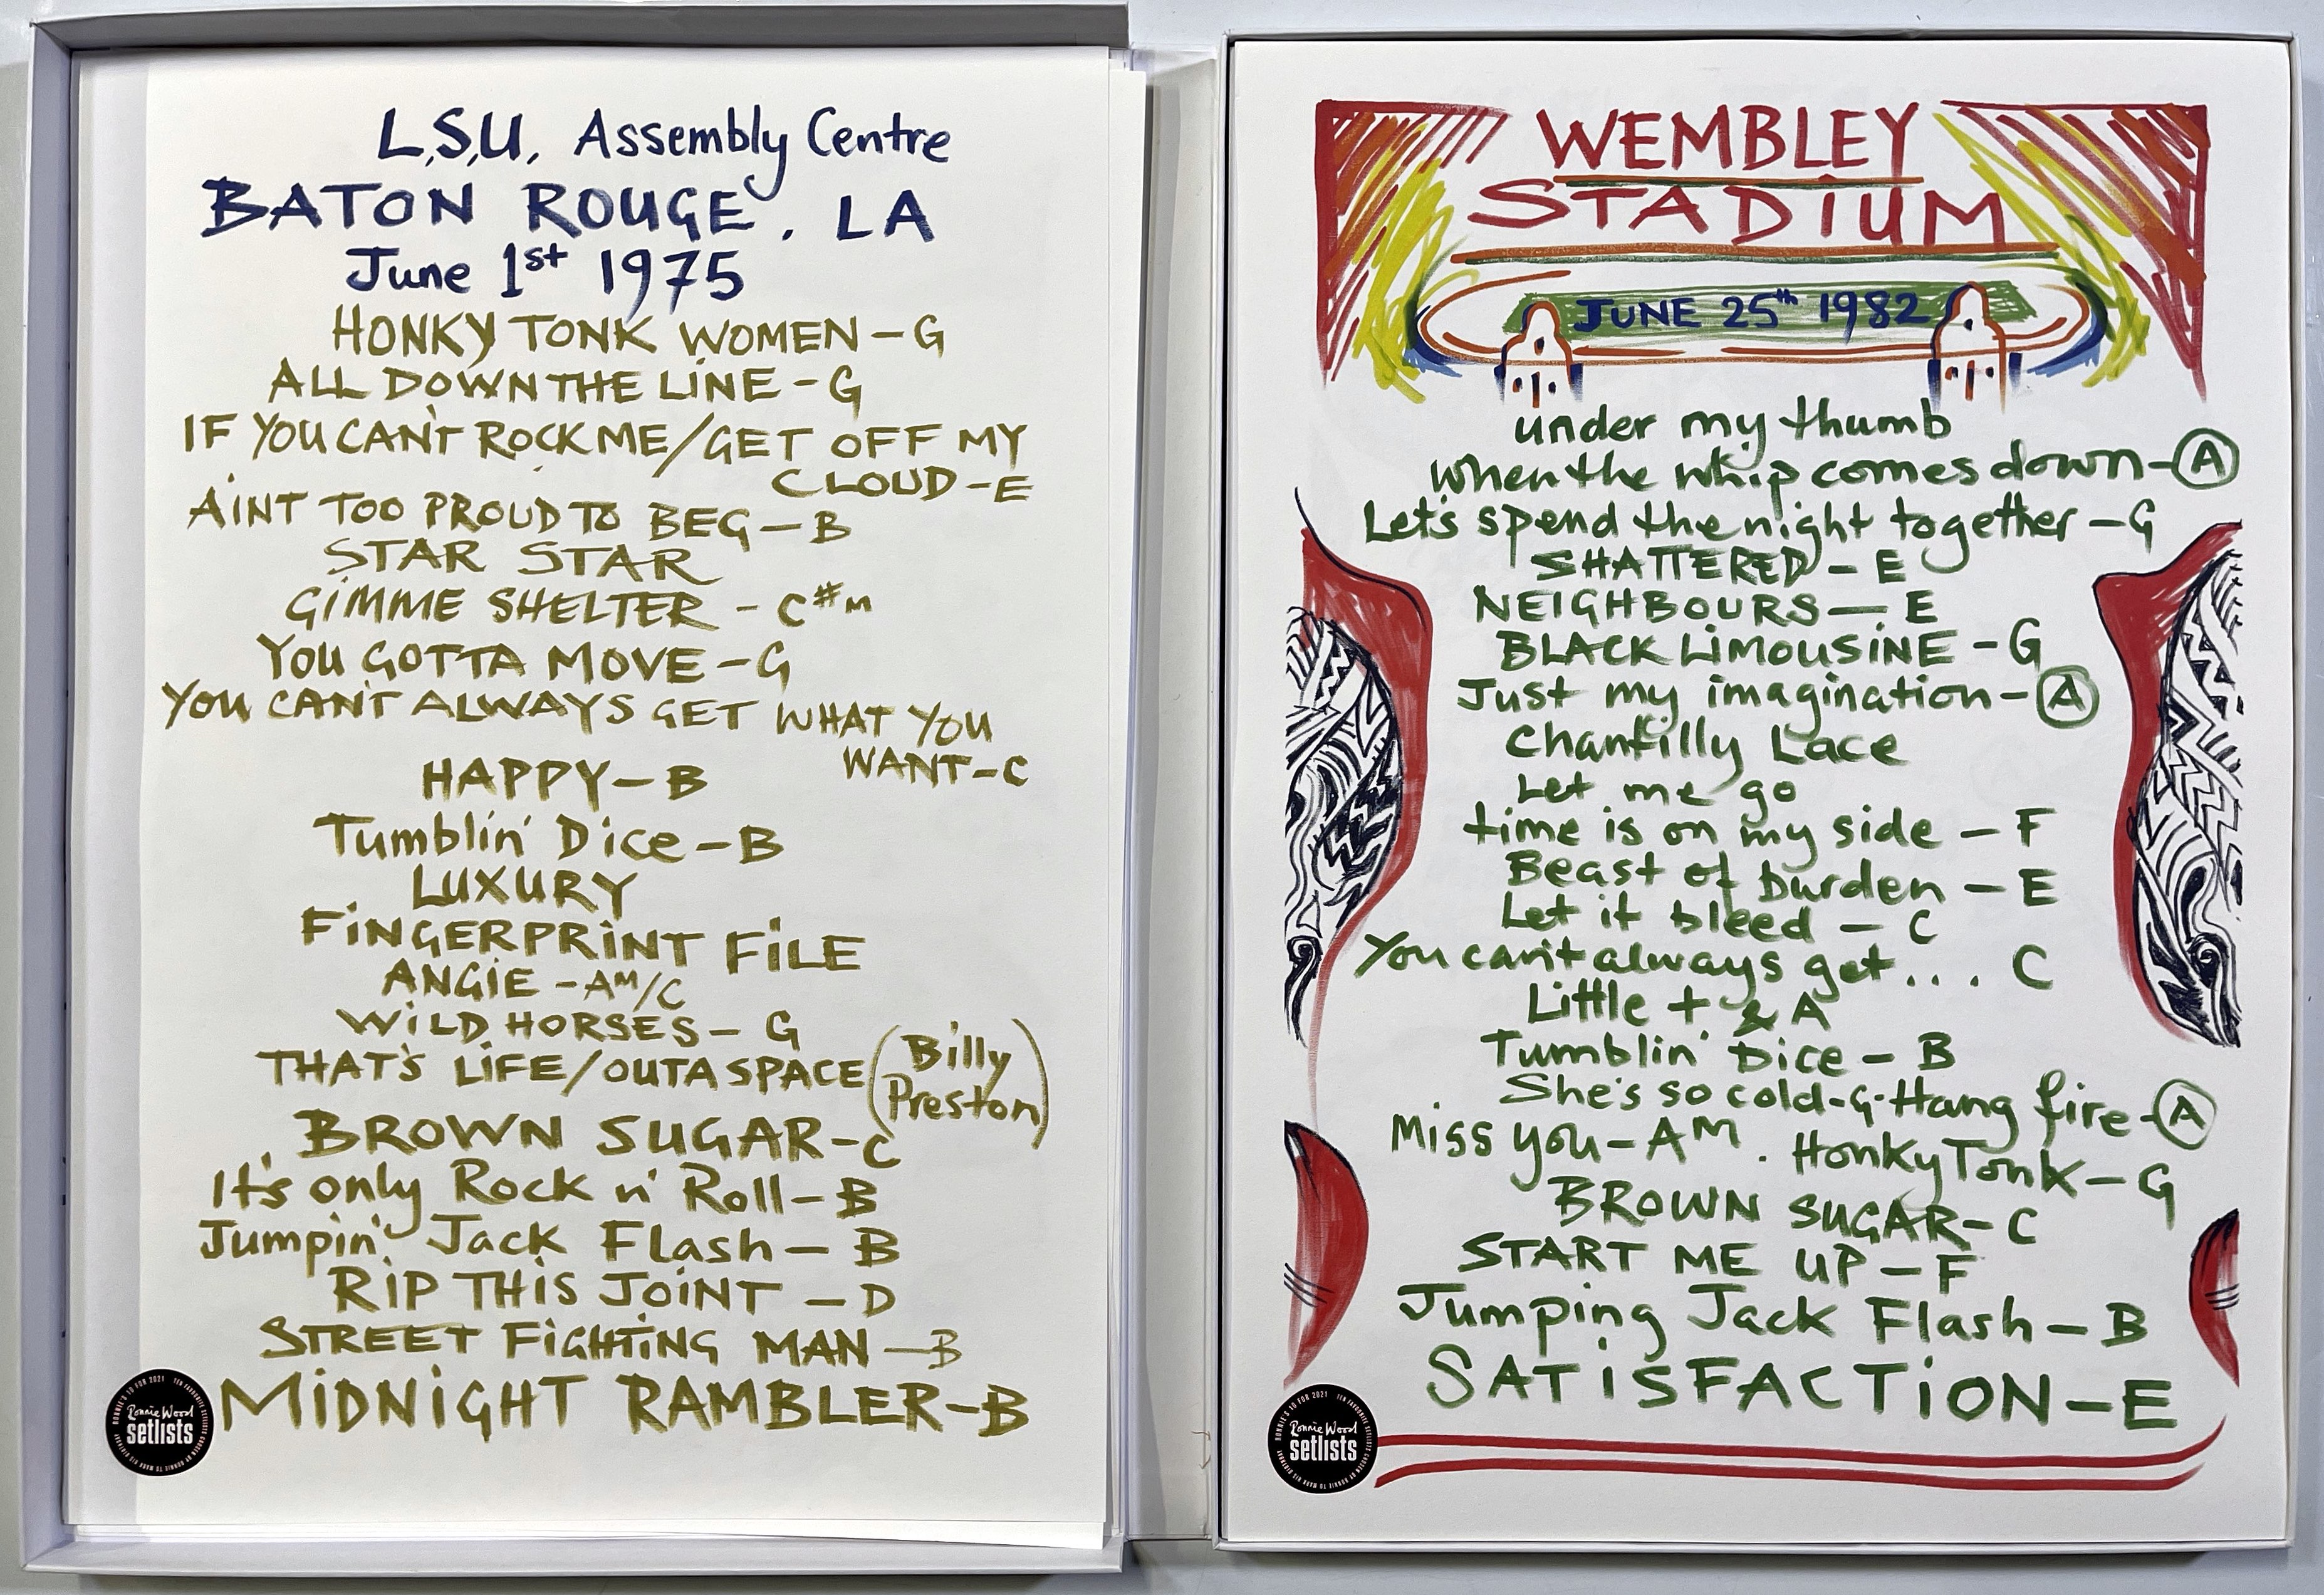 L.S.U. Assembly Centre
BATON ROUGE. LA
June 1st 1975
HONKY TONK WOMEN - G
ALL DOWN THE LINE - G
IF YOU CAN'T ROCK ME/GET OFF MY
CLOUD - E
AIN'T TOO PROUD TO BEG - B
STAR STAR
GIMME SHELTER - C#m
YOU GOTTA MOVE - G
YOU CAN'T ALWAYS GET WHAT YOU
WANT - C
HAPPY - B
Tumblin' Dice - B
LUXURY
FINGERPRINT FILE
ANGIE - AM/C
WILD HORSES - G
THAT'S LIFE/OUTA SPACE (Billy
Preston)
BROWN SUGAR - C
It's only Rock n' Roll - B
Jumpin' Jack Flash - B
RIP THIS JOINT - D
STREET FIGHTING MAN - B
MIDNIGHT RAMBLER - B
Ronnie Wood
setlists
WEMBLEY
STADIUM
JUNE 25th 1982
under my thumb
When the whip comes down - A
Let's spend the night together - G
SHATTERED - E
NEIGHBOURS - E
BLACK LIMOUSINE - G
Just my imagination - A
Chantilly Lace
Let me go
time is on my side - F
Beast of burden - E
Let it bleed - C
You can't always get... C
Little t & A
Tumblin' Dice - B
She's so cold - G - Hang fire - A
Miss you - AM. Honky Tonk - G
BROWN SUGAR - C
START ME UP - F
Jumping Jack Flash - B
SATISFACTION - E
Ronnie Wood
setlists